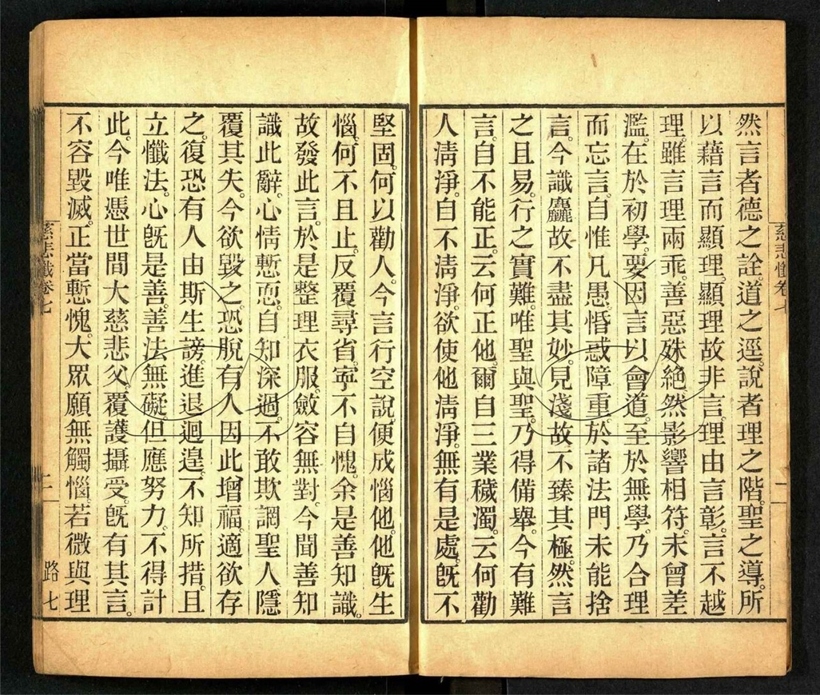 慈悲懺卷七
二
然言者德之詮道之逕說者理之階聖之導。所
以藉言而顯理。顯理故非言。理由言彰。言不越
理。雖言理兩乖。善惡殊絶。然影響相符。未曾差
濫。在於初學。要因言以會道。至於無學。乃合理
而忘言。自惟凡愚。惛惑障重。於諸法門。未能捨
言。今識麤故不盡其妙。見淺故不臻其極。然言
之且易。行之實難。唯聖與聖。乃得備舉。今有難
言。自不能正。云何正他。爾自三業穢濁。云何勸
人清淨。自不清淨。欲使他清淨。無有是處。既不
堅固。何以勸人。今言行空說。便成惱他。他既生
惱。何不且止。反覆尋省。寧不自愧。余是善知識。
故發此言。於是整理衣服。斂容無對。今聞善知
識此辭。心情慙恧。自知深過。不敢欺誷聖人。隱
覆其失。今欲毀之。恐脫有人因此增福。適欲存
之。復恐有人由斯生謗。進退迴遑。不知所措。且
立懺法。心既是善。善法無礙。但應努力。不得計
此。今唯憑世間大慈悲父。覆護攝受。既有其言。
不容毀滅。正當慙愧。大眾願無觸惱。若微與理
慈悲懺卷七
二
路七